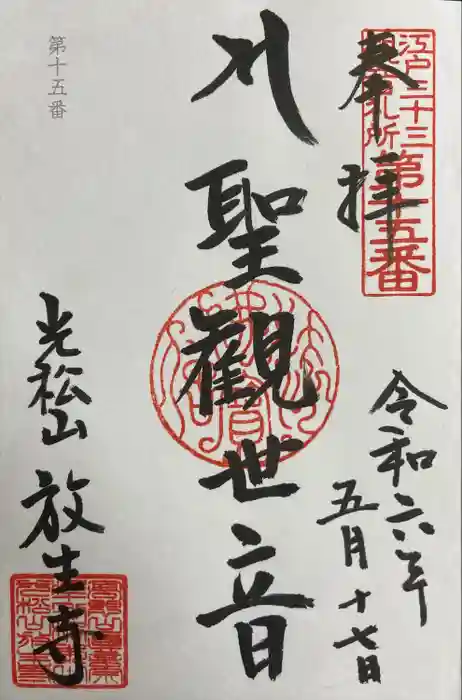 江戸三十三
観音札所
第十五番
奉拝
令和六年
五月十七日
聖觀世音
光松山
放生寺
第十五番